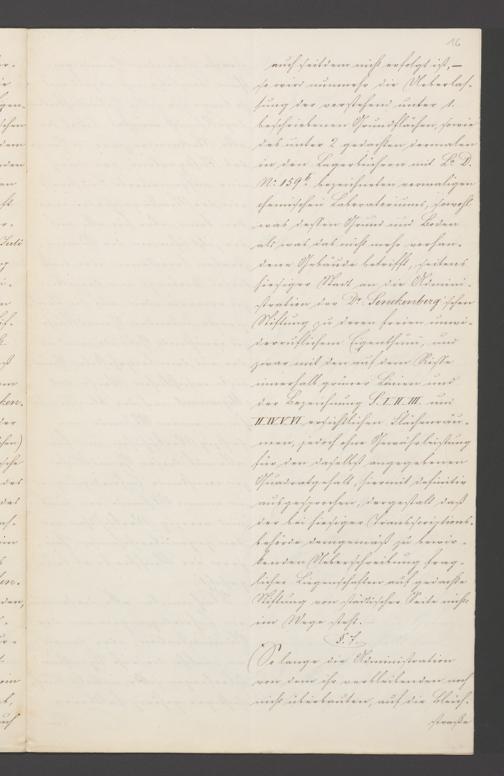 16
auch seitdem nicht erfolgt ist, —
so wird nunmehr die Ueberlas-
sung der vorstehend unter 1.
beschriebenen Grundflächen, sowie
des unter 2 gedachten dermalen
in den Lagerbüchern mit Lit. D.
No. 159 b. bezeichneten vormaligen
chemischen Laboratoriums, sowohl
was dessen Grund und Boden
als was das nicht mehr vorhan-
dene Gebäude betrifft, seitens
hiesiger Stadt an die Admini-
stration der Dr. Senckenberg'schen
Stiftung zu deren freien unwi-
derruflichem Eigenthum, und
zwar mit den auf dem Risse
innerhalb grüner Linien und
der Bezeichnung I. II. III. und
II. IV. V. VI. ersichtlichen Flächenräu-
men, jedoch ohne Gewährleistung
für den daselbst angegebenen
Quadratgehalt, hiermit definitiv
ausgesprochen, dergestalt daß
der bei hiesiger Transscriptions-
behörde demgemäß zu bewir-
kenden Ueberschreibung frag-
licher Liegenschaften auf gedachte
Stiftung von städtischer Seite nichts
im Wege steht.
§. 7.
So lange die Administration
von dem ihr verbleibenden noch
nicht überbauten, auf die Bleich-
straße